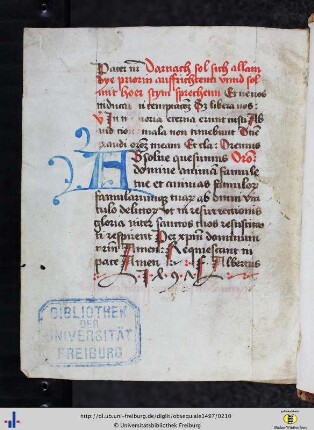 Pater nr Darnach sol sich allain
dye priorin auffrichtenn vnnd sol
mit hoer stym sprechenn Et ne nos
inducas in temptacōem Sz libera nos:
V In memoria eterna erunt iusti Ab
auditione mala non timebunt Dūe
exaudi orōnem meam Et cla: Oremus
Absolue quesumus Oro
domine animam famule
tue et animas famulor
famularumque tuarum ab omni vin
culo delictorum vt in resurrectionis
gloria inter sanctos tuos resuscitati
respirent Per xpm dominum
nrm Amen: Requiescant in
pace Amen F Albertus
1 4 9 7
BIBLIOTHEK
DER
UNIVERSITÄT
FREIBURG
http://dl.ub.uni-freiburg.de/diglit/obsequiale1497/0210
© Universitätsbibliothek Freiburg
Baden-Württemberg